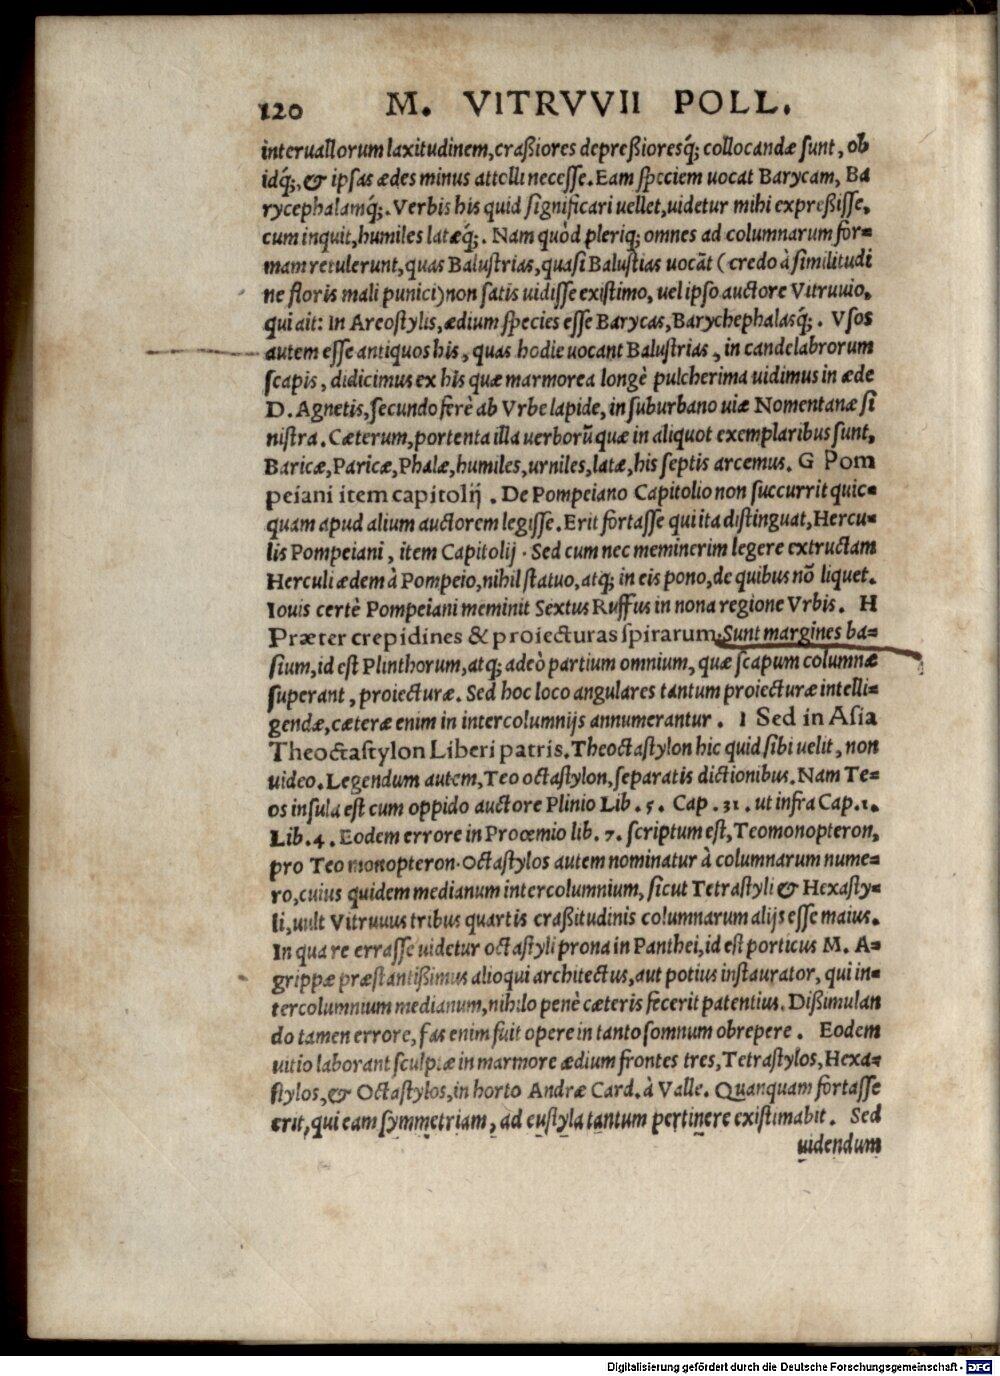 120 M. VITRVVII POLL.
interuallorum laxitudinem, craßiores depreßioresq́; collocandæ sunt, ob
idq́;, & ipsas ædes minus attolli necesse. Eam speciem uocat Barycam, Ba
rycephalamq́;. Verbis his quid significari uellet, uidetur mihi expreßisse,
cum inquit, humiles latæq́;. Nam quòd pleriq; omnes ad columnarum for=
mam retulerunt, quas Balustrias, quasi Balustias uocãt (credo à similitudi
ne floris mali punici) non satis uidisse existimo, uel ipso auctore Vitruuio,
qui ait: In Areostylis, ædium species esse Barycas, Barychephalasq́;. Vsos
autem esse antiquos his, quas hodie uocant Balustrias, in candelabrorum
scapis, didicimus ex his quæ marmorea longè pulcherima uidimus in æde
D. Agnetis, secundo ferè ab Vrbe lapide, in suburbano uiæ Nomentanæ si
nistra. Cæterum, portenta illa uerborũ quæ in aliquot exemplaribus sunt,
Baricæ, Paricæ, Phalæ, humiles, urniles, latæ, his septis arcemus. G Pom
peiani item capitolij. De Pompeiano Capitolio non succurrit quic=
quam apud alium auctorem legisse. Erit fortasse qui ita distinguat, Hercu=
lis Pompeiani, item Capitolij. Sed cum nec meminerim legere extructam
Herculi ædem à Pompeio, nihil statuo, atq; in eis pono, de quibus nõ liquet.
Iouis certè Pompeiani meminit Sextus Ruffus in nona regione Vrbis. H
Præter crepidines & proiecturas spirarum. Sunt margines ba=
sium, id est Plinthorum, atq; adeò partium omnium, quæ scapum columnæ
superant, proiecturæ. Sed hoc loco angulares tantum proiecturæ intelli=
gendæ, cæteræ enim in intercolumnijs annumerantur. I Sed in Asia
Theoctastylon Liberi patris. Theoctastylon hic quid sibi uelit, non
uideo. Legendum autem, Teo octastylon, separatis dictionibus. Nam Te=
os insula est cum oppido auctore Plinio Lib. 5. Cap. 31. ut infra Cap. 1.
Lib. 4. Eodem errore in Procemio lib. 7. scriptum est, Teomonopteron,
pro Teo monopteron. Octastylos autem nominatur à columnarum nume=
ro, cuius quidem medianum intercolumnium, sicut Tetrastyli & Hexasty=
li, uult Vitruuus tribus quartis craßitudinis columnarum alijs esse maius.
In qua re errasse uidetur octastyli prona in Panthei, id est porticus M. A=
grippæ præstantißimus alioqui architectus, aut potius instaurator, qui in=
tercolumnium medianum, nihilo penè cæteris fecerit patentius. Dißimulan
do tamen errore, fas enim fuit opere in tanto somnum obrepere. Eodem
uitio laborant sculptæ in marmore ædium frontes tres, Tetrastylos, Hexa=
stylos, & Octastylos, in horto Andræ Card. à Valle. Quanquam fortasse
erit, qui eam symmetriam, ad eustyla tantum pertinere existimabit. Sed
uidendum
Digitalisierung gefördert durch die Deutsche Forschungsgemeinschaft - DFG